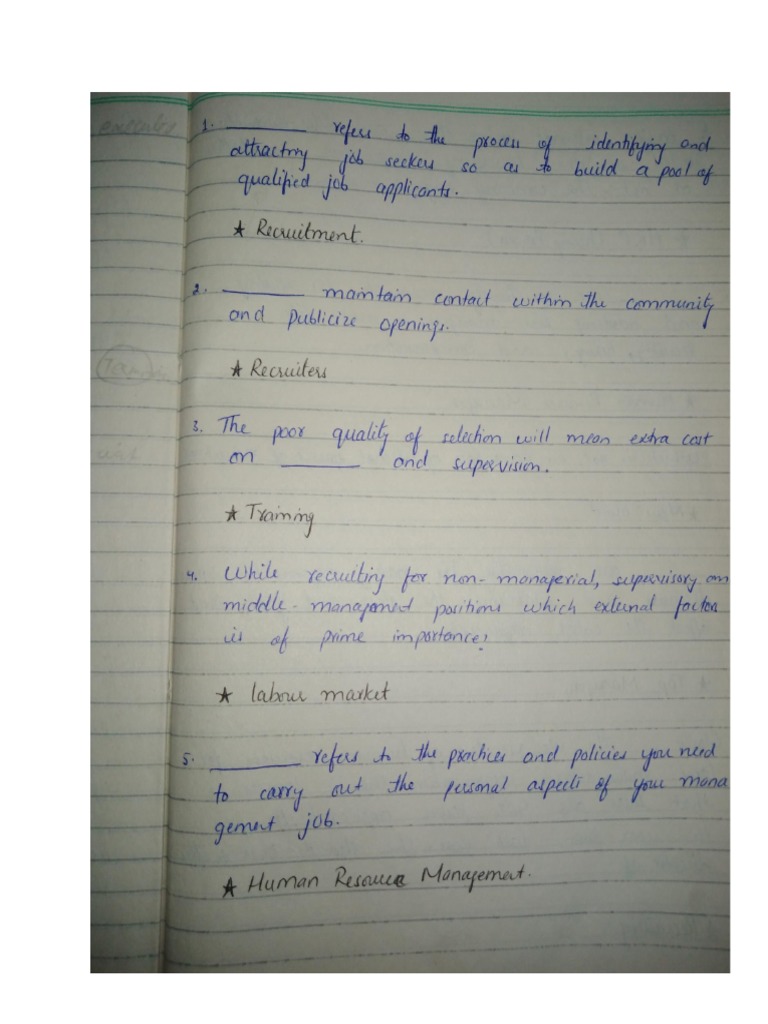 1. ________ refers to the process of identifying and
attracting job seekers so as to build a pool of
qualified job applicants.
★ Recruitment.
2. ________ maintain contact within the community
and publicize openings.
★ Recruiters
3. The poor quality of selection will mean extra cost
on ________ and supervision.
★ Training
4. While recruiting for non-managerial, supervisory an
middle-management positions which external factor
is of prime importance?
★ labour market
5. ________ refers to the practices and policies you need
to carry out the personal aspects of your mana
gement job.
★ Human Resource Management.